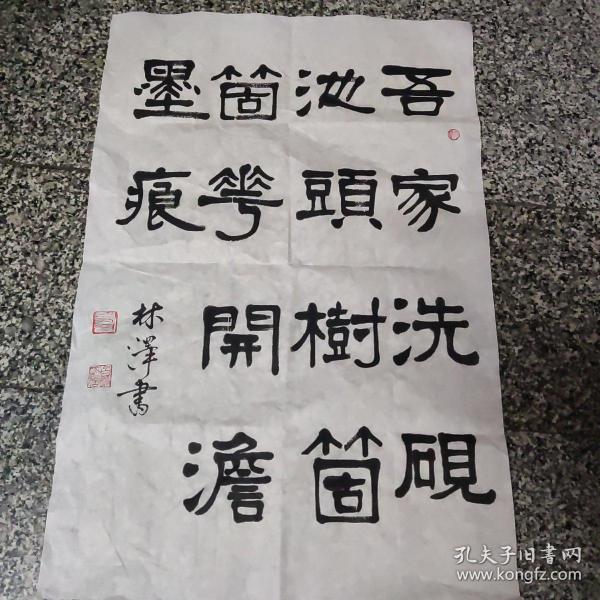 吾家洗硯
池頭樹箇
箇花開澹
墨痕
林澤書
孔夫子旧書网
www.kongfz.com